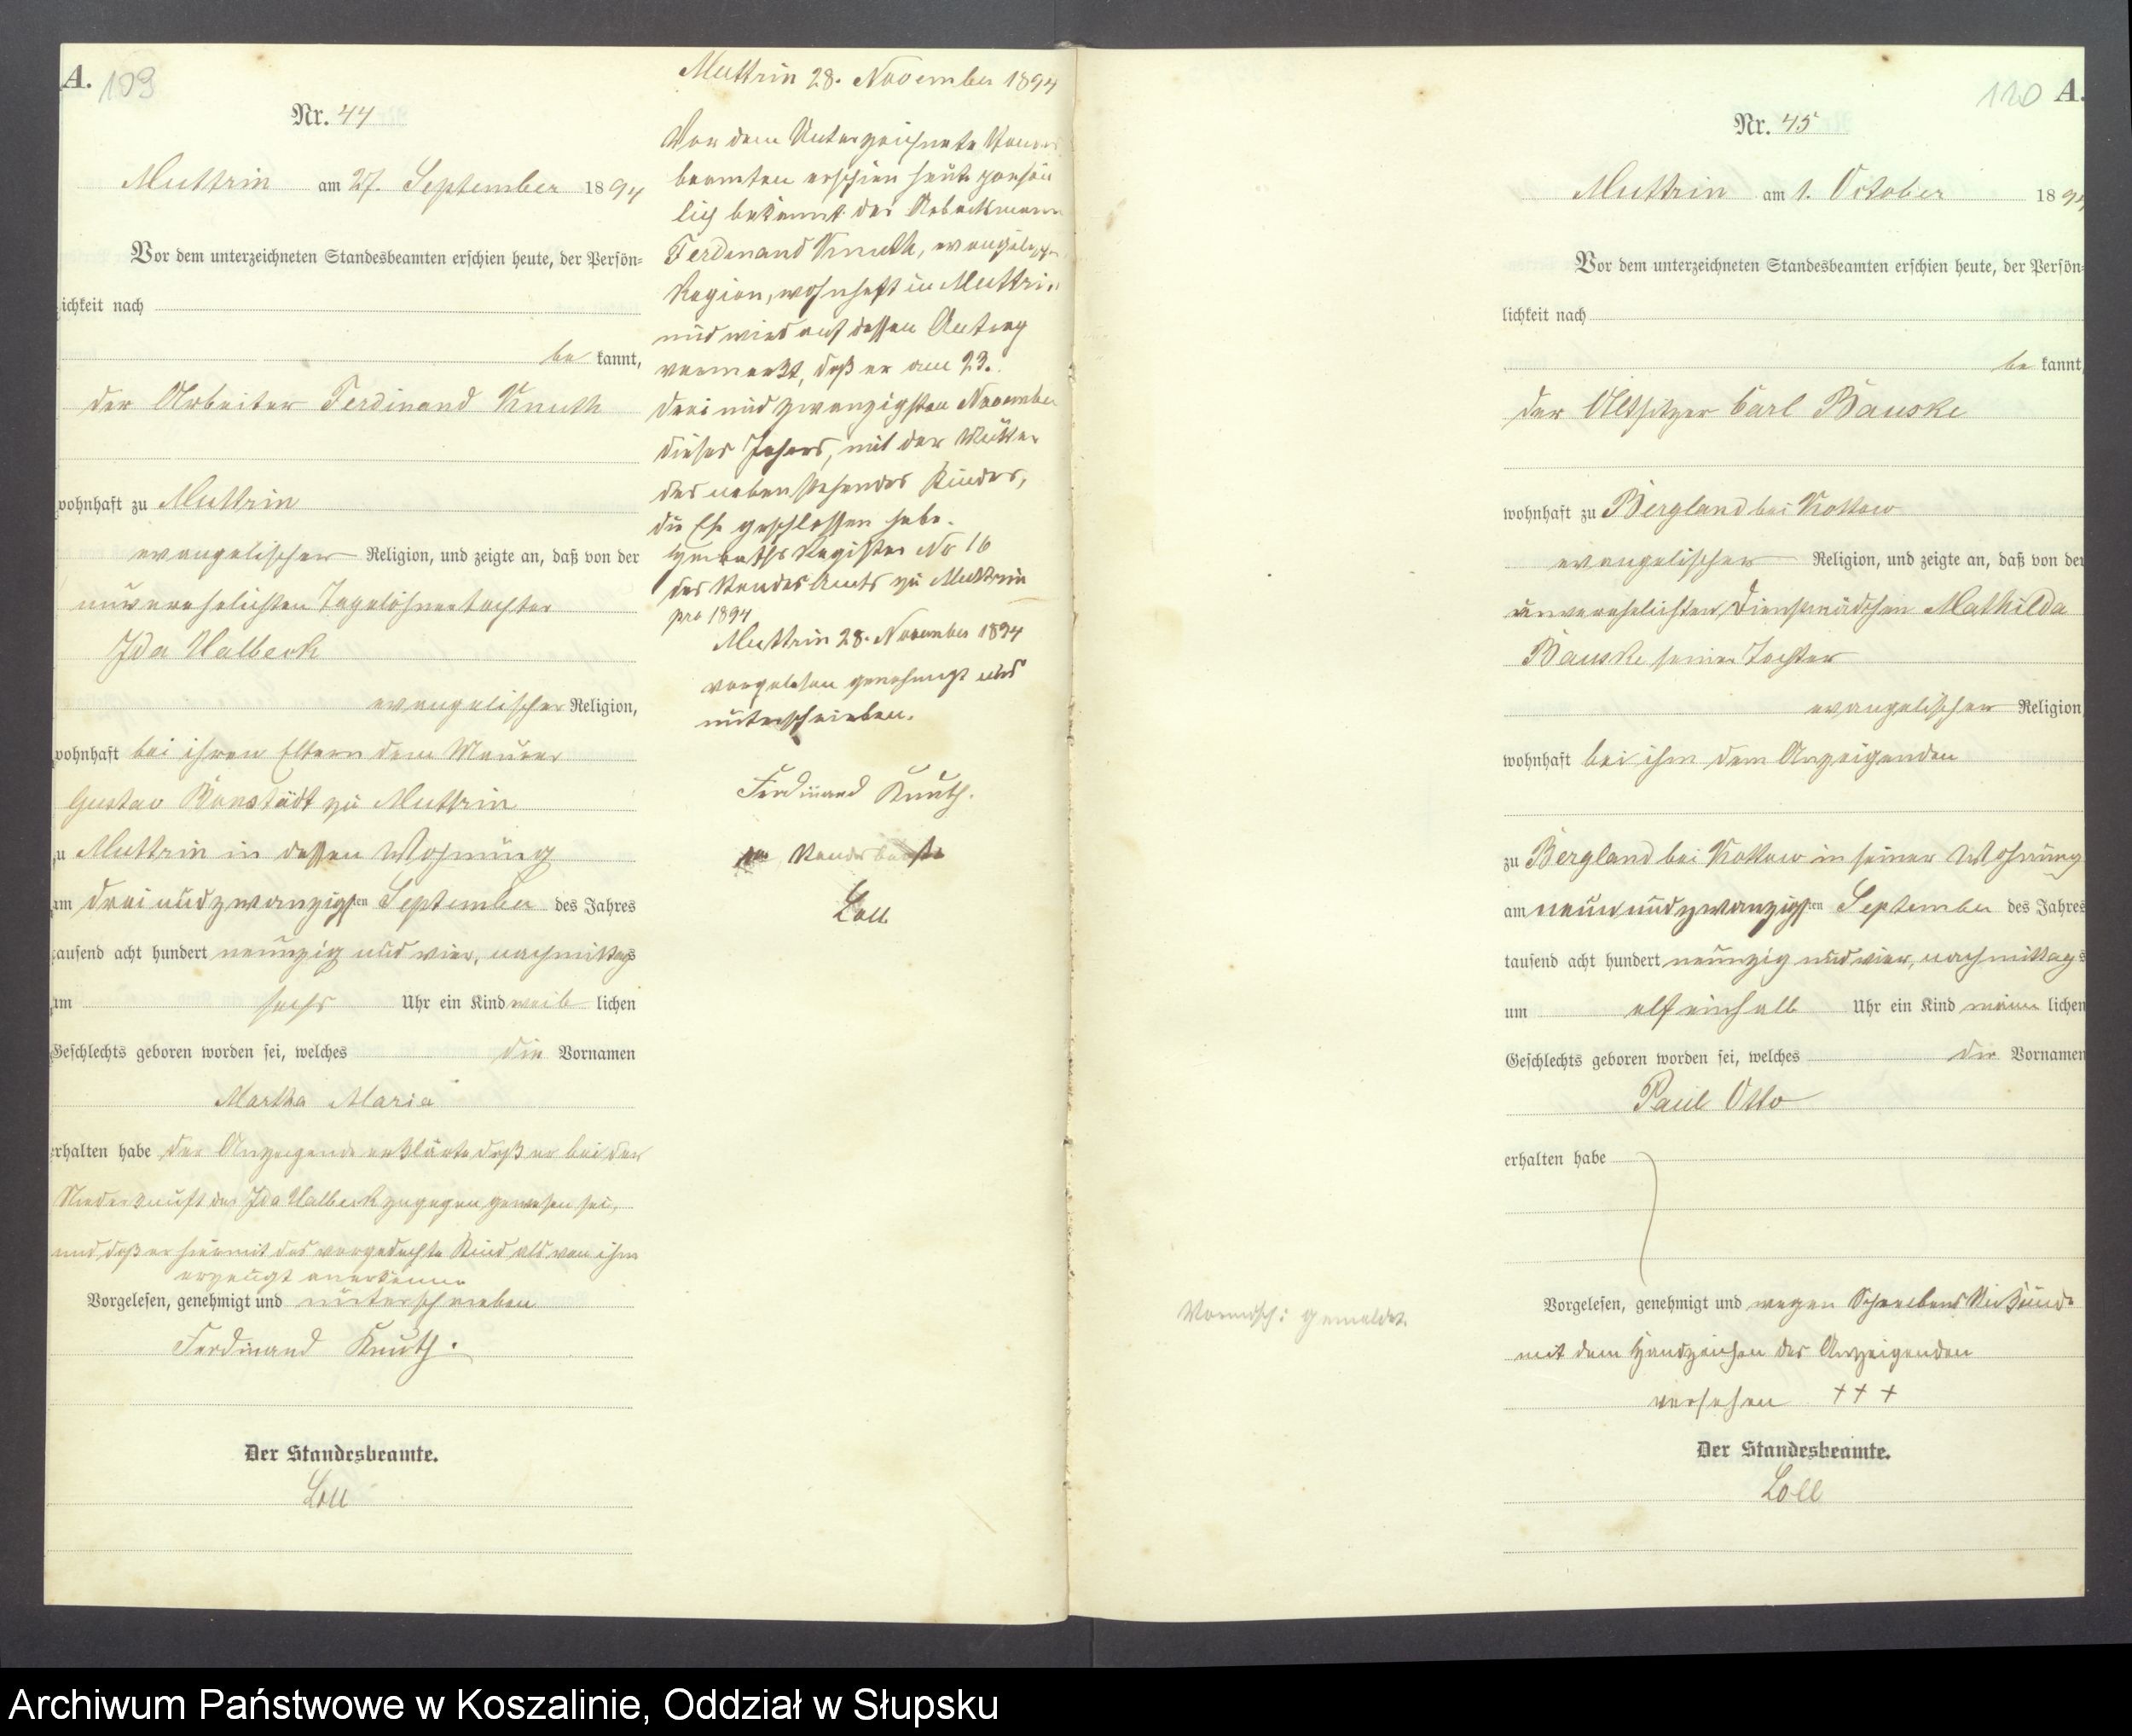 A. 103
Nr. 44
Muttrin am 27. September 1894
Vor dem unterzeichneten Standesbeamten erschien heute, der Persön=
lichkeit nach
be kannt,
der Arbeiter Ferdinand Knuth
wohnhaft zu Muttrin
evangelischer Religion, und zeigte an, daß von der
unverehelichten Tagelöhnertochter
Ida Halbeck
evangelischer Religion,
wohnhaft bei ihren Eltern dem Maurer
Gustav zu Muttrin
zu Muttrin in dessen Wohnung
am drei und zwanzigsten September des Jahres
tausend acht hundert neunzig und vier, nachmittags
um sechs Uhr ein Kind weib lichen
Geschlechts geboren worden sei, welches die Vornamen
Martha Maria
erhalten habe der Anzeigende erklärte daß er bei der
Niederkunft der Ida Halbeck zugegen gewesen sei,
und daß er hiermit das vorgedachte Kind als von ihm
erzeugt anerkenne
Vorgelesen, genehmigt und unterschrieben
Ferdinand Knuth.
Der Standesbeamte.
Loll
Muttrin 28. November 1894
Vor dem Unterzeichnete Standes
beamten erschien heute persön
lich bekannt der Arbeitsmann
Ferdinand Knuth, evangelischer
Region, wohnhaft in Muttrin
und wird auf dessen Antrag
vermerkt, daß er am 23.
drei und zwanzigsten November
dieses Jahres, mit der Mutter
des nebenstehendes Kindes,
die Ehe geschlossen habe.
Heiraths Register No 16
des Standes Amts zu Muttrin
pro 1894
Muttrin 28. November 1894
vorgelesen genehmigt und
unterschrieben.
Ferdinand Knuth.
Der Standesbeamte
Loll
110 A.
Nr. 45
Muttrin am 1. October 1894
Vor dem unterzeichneten Standesbeamten erschien heute, der Persön=
lichkeit nach
be kannt,
der Altsitzer Carl Bauske
wohnhaft zu Bergland bei Kottow
evangelischer Religion, und zeigte an, daß von der
unverehelichten Dienstmädchen Mathilda
Bauske seiner Tochter
evangelischer Religion
wohnhaft bei ihm dem Anzeigenden
zu Bergland bei Kottow in seiner Wohnung
am neun und zwanzigsten September des Jahres
tausend acht hundert neunzig und vier, nachmittags
um elf einhalb Uhr ein Kind männ lichen
Geschlechts geboren worden sei, welches die Vornamen
Paul Otto
erhalten habe
Vorgelesen, genehmigt und wegen Schreibens Unkunde
mit dem Handzeichen des Anzeigenden
versehen +++
Der Standesbeamte.
Loll
gemeldet.
Archiwum Państwowe w Koszalinie, Oddział w Słupsku